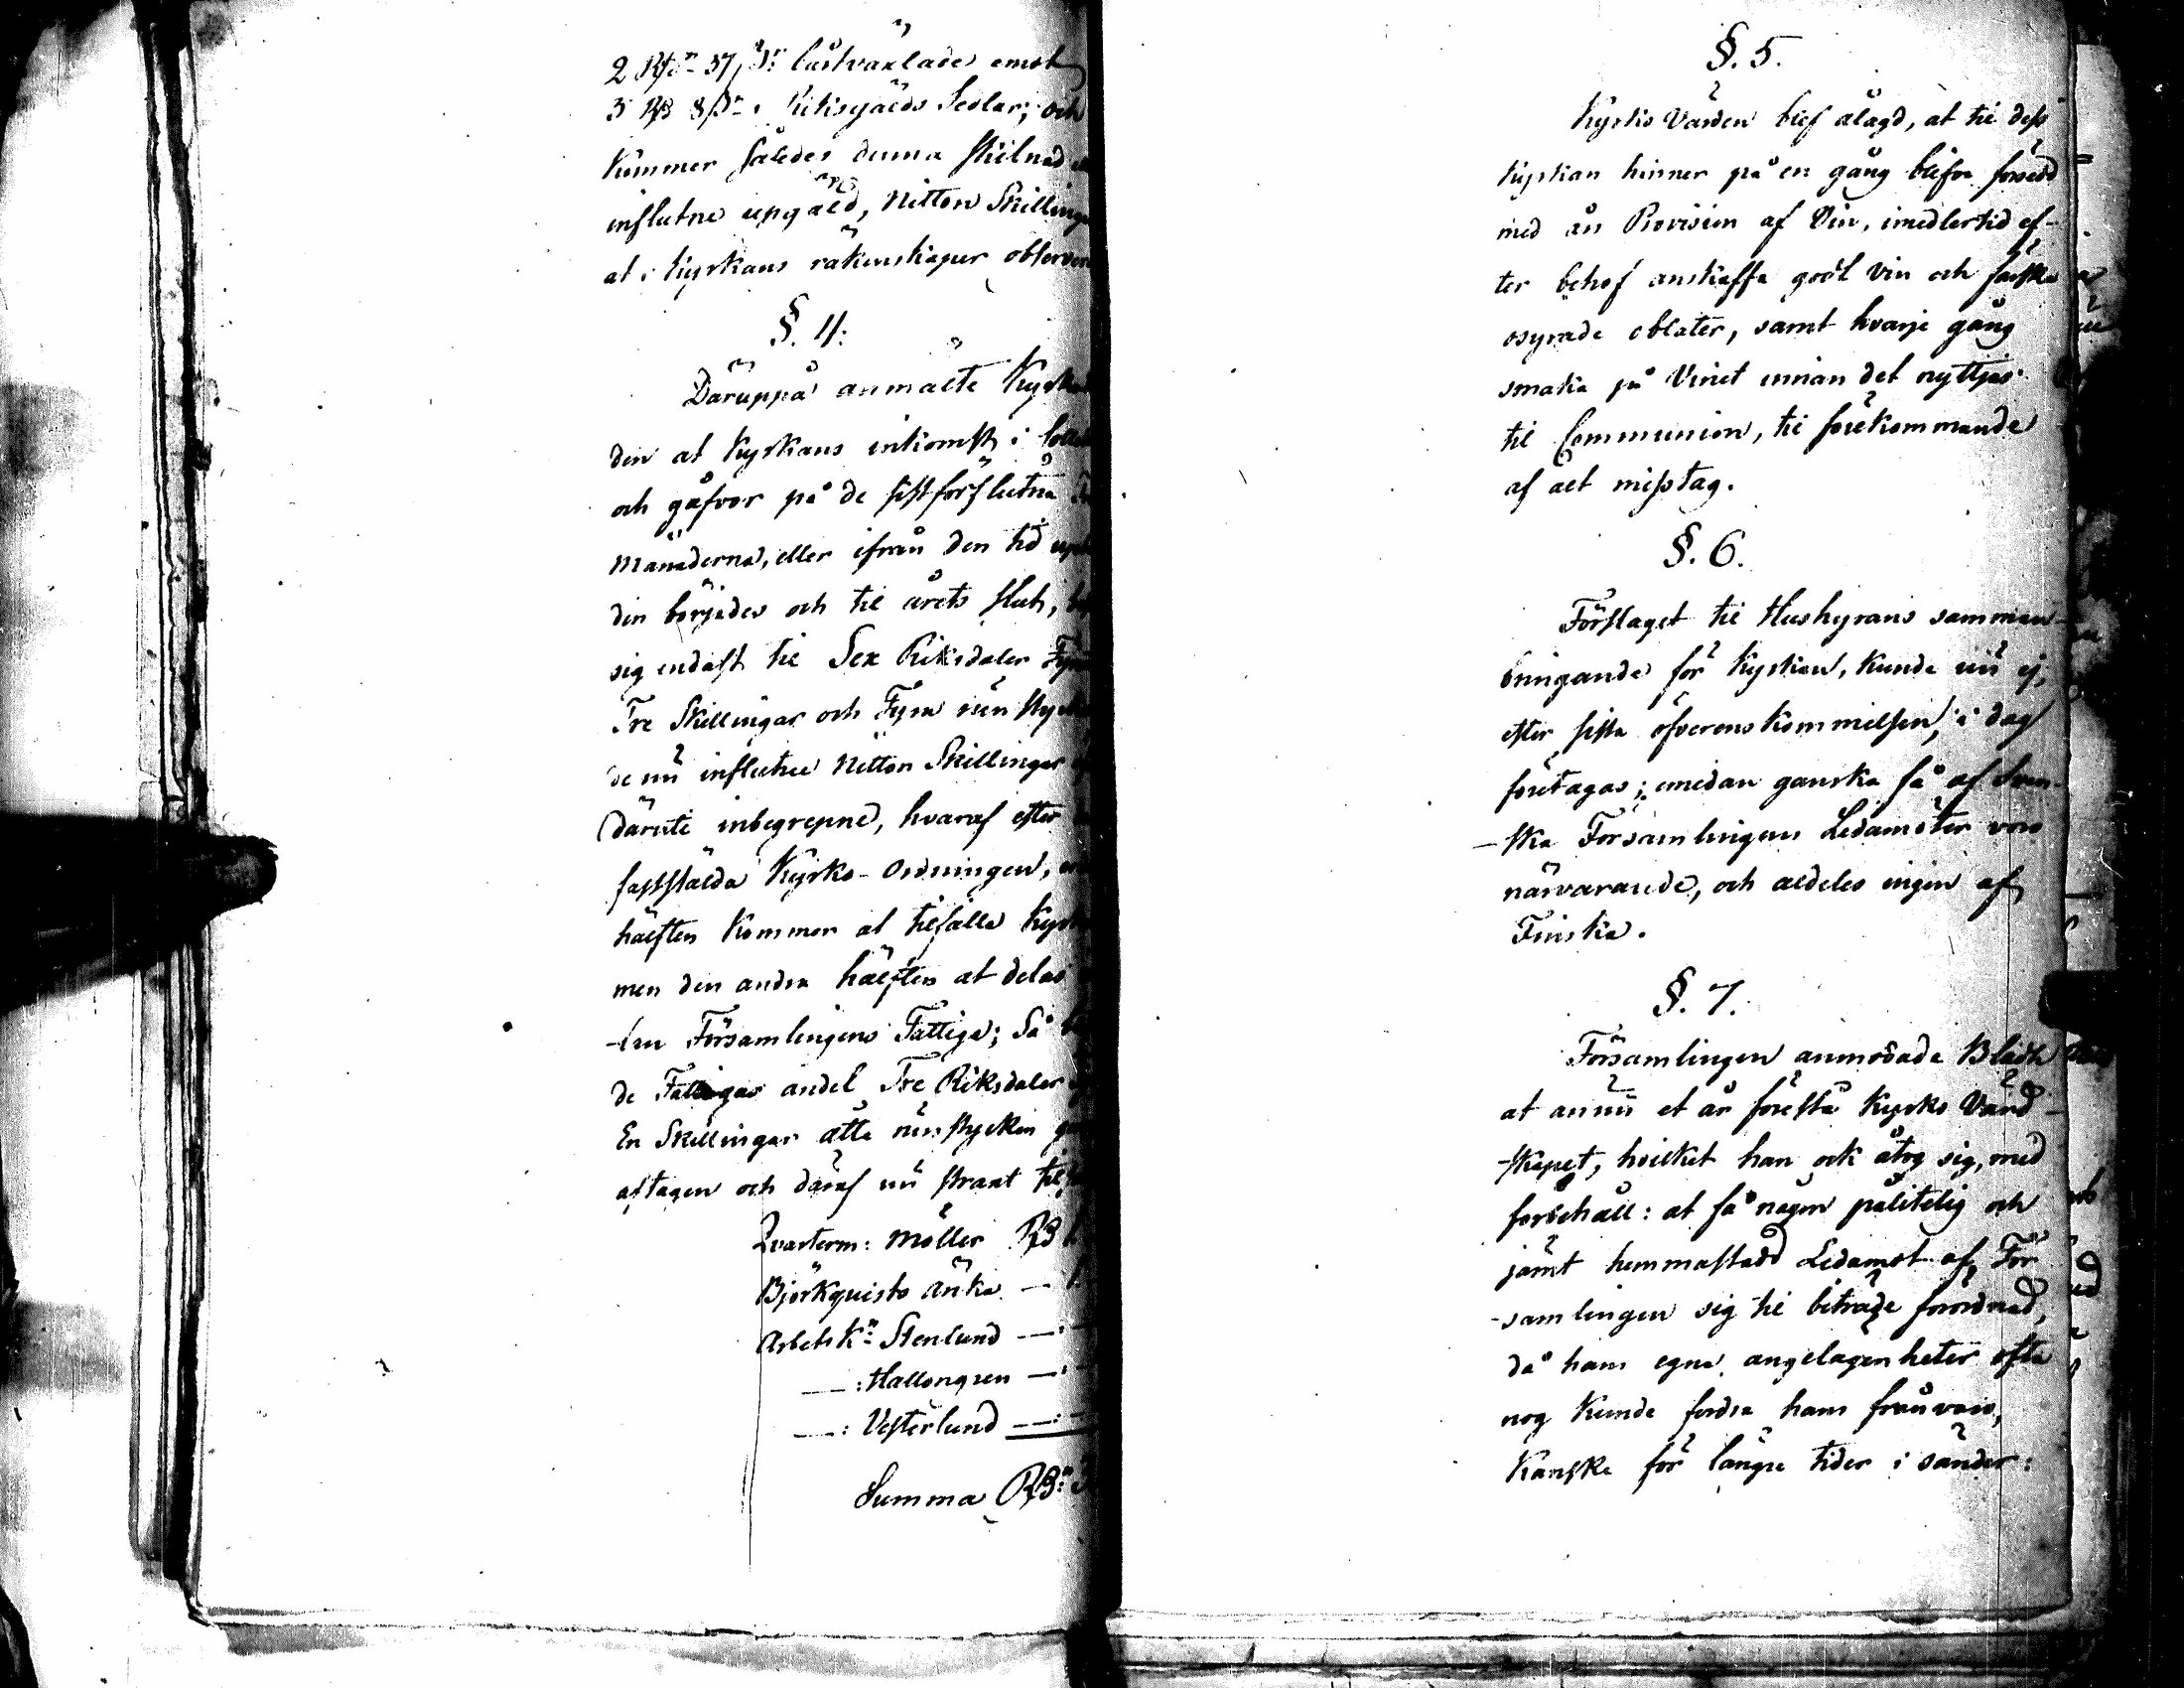 2 Rd 37 s: låstvaxlades emot
3 Rd 8 s i Riksgälds Sedlar; och
Kommer således denna skilnad
influtne upgæld, Nitton Skillingar
at i Kyrkans räkenskaper observer
§. 4:
Däruppå anmälte Kyrko
den at Kyrkans inkomst i Collect
och gåfvor på de sist förflutna
Månaderna, eller ifrån den tid
den började och til årets slut,
sig endast til Sex Riksdaler Fyra
Tre Skillingar och Fyra rün stycken
de nü influtne Nitton Skillingar
däruti inbegrepne, hvaraf efter
fastställda Kyrko-Ordningen,
hälften Kommer at tilfalla Kyrk
men den andra hälften at delas
Församlingens Fattige; Så
de Fattigas andel Tre Riksdaler
En Skillingar åtta rün stycken
aftagen och däraf nü straxt til
Qvarterm: Möller Rd 1.
Björkquists änka — 1.
Arbets K:n Stenlund —:
—: Hallongren —:
—: Vesterlund —:
Summa Rd: 3
§. 5.
Kyrko Värden blef ålagd, at til dess
Kyrkan hinner på en gång blifva försedd
med än Provision af Vin, imedlertid ef-
ter behof anskaffa godt Vin och färska
osyrade oblater, samt hvarje gång
smaka på Vinet innan det nyttjas
til Communion, til förekommande
af alt misstag.
§. 6.
Förslaget til Hushyrans samman-
bringande för Kyrkan, Kunde nü ej,
efter sista öfverenskommelsen, i dag
företagas; emedan ganska få af Sven-
-ska Församlingens Ledamöter voro
närvarande, och aldeles ingen af
Finska.
§. 7.
Församlingen anmodade Bladh
at annü et år förestå Kyrko Värd-
-skapet, hvilket han ock åtog sig, med
förbehåll: at få någon pålitelig och
jämt hemmastadd Ledamot af För-
-samlingen sig til biträde förordnad,
då hans egna angelägenheter ofta
nog Kunde fordra hans frånvaro,
Kanske för längre tider i sänder: